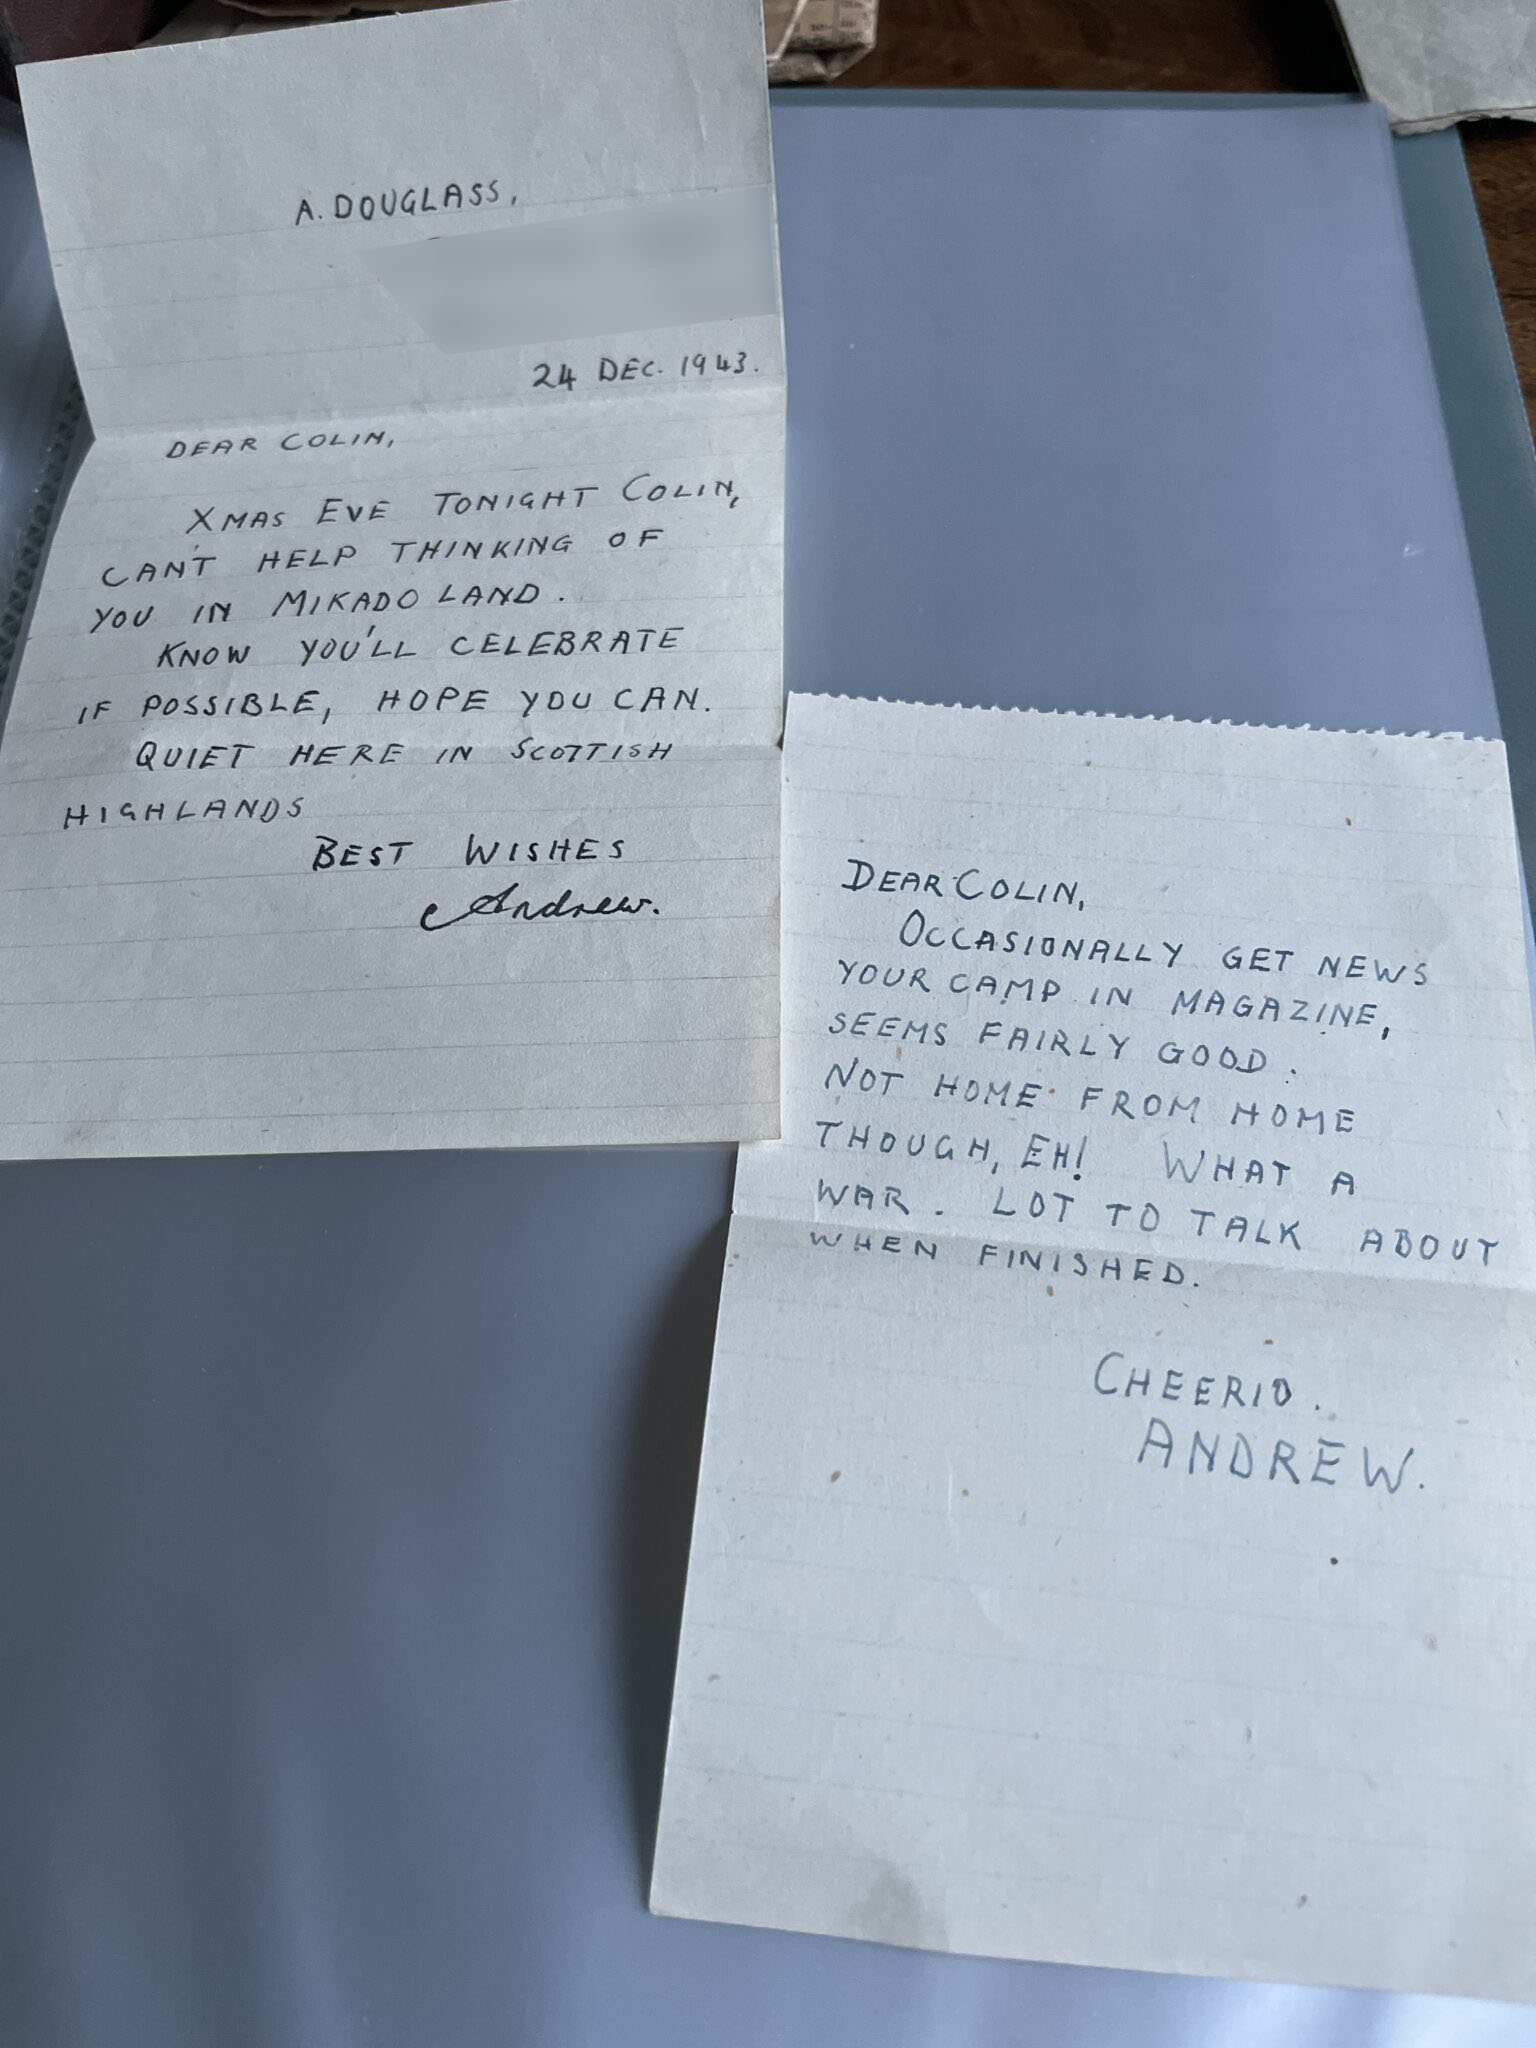 A. DOUGLASS,
24 DEC. 1943.
DEAR COLIN,
XMAS EVE TONIGHT COLIN,
CAN'T HELP THINKING OF
YOU IN MIKADO LAND.
KNOW YOU'LL CELEBRATE
IF POSSIBLE, HOPE YOU CAN.
QUIET HERE IN SCOTTISH
HIGHLANDS
BEST WISHES
Andrew.
DEAR COLIN,
OCCASIONALLY GET NEWS
YOUR CAMP IN MAGAZINE,
SEEMS FAIRLY GOOD.
NOT HOME FROM HOME
THOUGH, EH! WHAT A
WAR. LOT TO TALK ABOUT
WHEN FINISHED.
CHEERIO.
ANDREW.